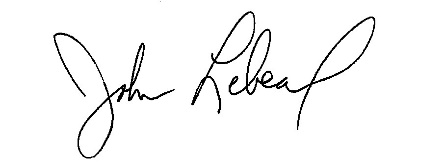 John Lebeau